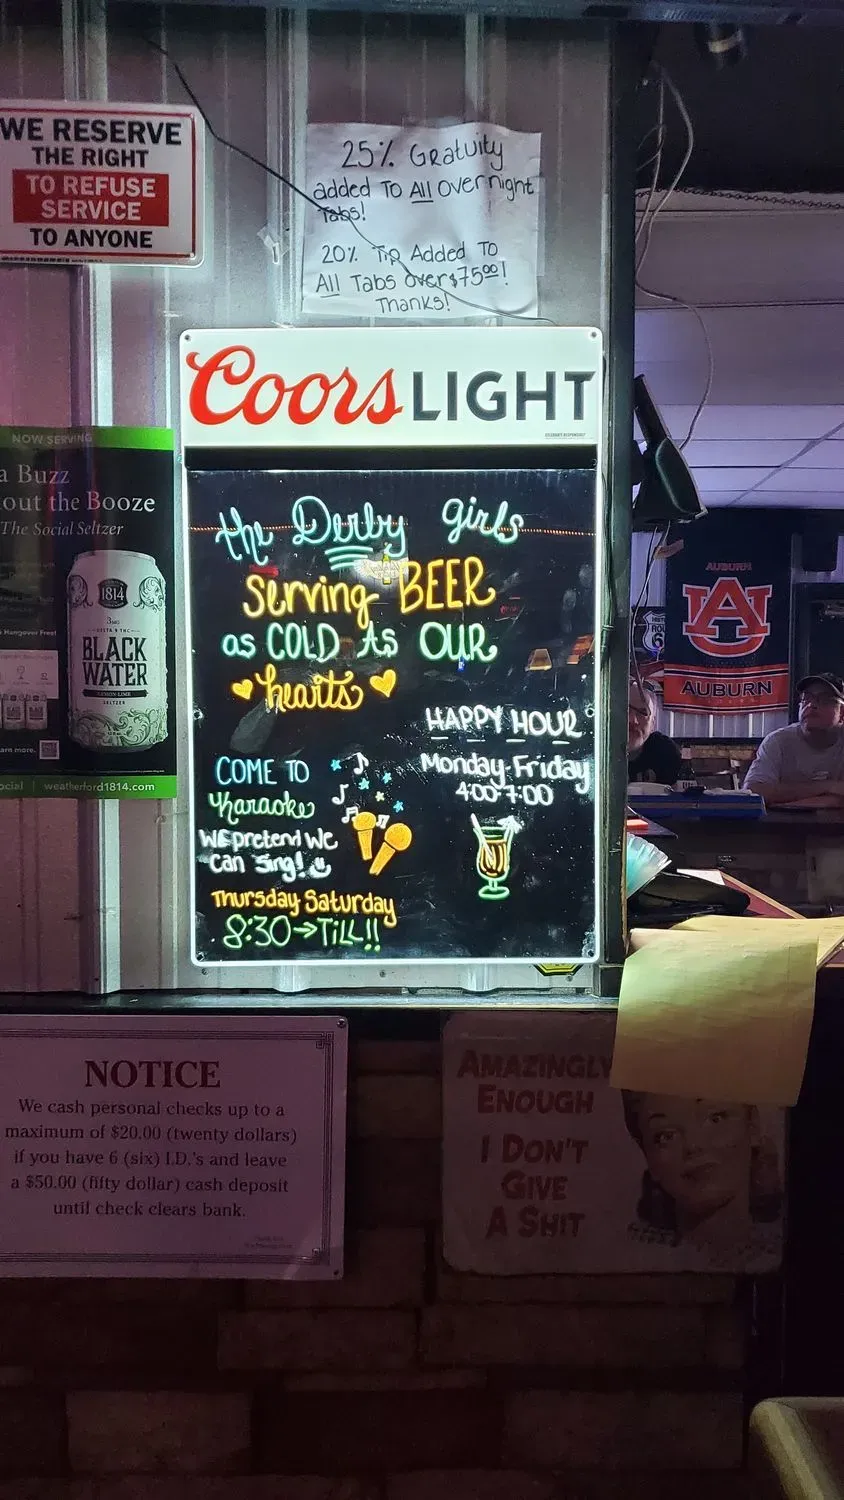 WE RESERVE
THE RIGHT
TO REFUSE
SERVICE
TO ANYONE
25% Gratuity
added To All Over night
Tabs!
20% Tip Added To
All Tabs over $75.00!
Thanks!
Coors LIGHT
NOW SERVING
a Buzz
out the Booze
The Social Seltzer
Hangover Free!
1814
BLACK
WATER
LEMON-LIME
SELTZER
arn more.
ocial | weatherford1814.com
the Derby girls
Serving BEER
as COLD As OUR
hearts
HAPPY HOUR
Monday-Friday
4:00-7:00
COME TO
Karaoke
We pretend We
can Sing!
Thursday Saturday
8:30→TiLL!!
AUBURN
AU
AUBURN
ROU
6
NOTICE
We cash personal checks up to a
maximum of $20.00 (twenty dollars)
if you have 6 (six) I.D.'s and leave
a $50.00 (fifty dollar) cash deposit
until check clears bank.
AMAZINGLY
ENOUGH
I DON'T
GIVE
A SHIT